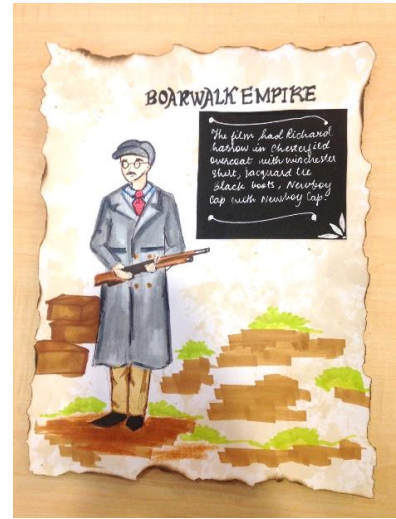 BOARWALK EMPIRE
The film had Richard
harrow in Chesterfield
overcoat with winchester
shirt, jacquard tie
Black boots, Newboy
Cap with Newboy Cap.